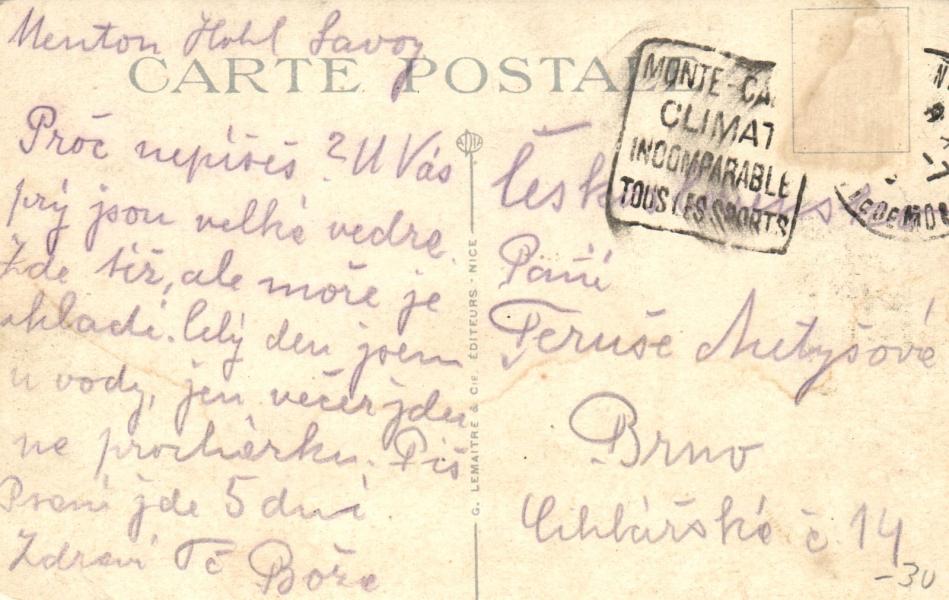 Menton Hotel Savoy
CARTE POSTALE
Proč nepíšeš? U Vás
prý jsou velké vedra.
Zde též, ale moře je
chladí. Celý den jsem
u vody, jen večer jdu
na procházku. Piš
Psaní jde 5 dní
Zdraví Tě Boža
G. LEMAITRE & Cie ÉDITEURS - NICE
MONTE-CA
CLIMAT
INCOMPARABLE
TOUS LES SPORTS
Paní
Brno
Cihlářská č. 14
-30